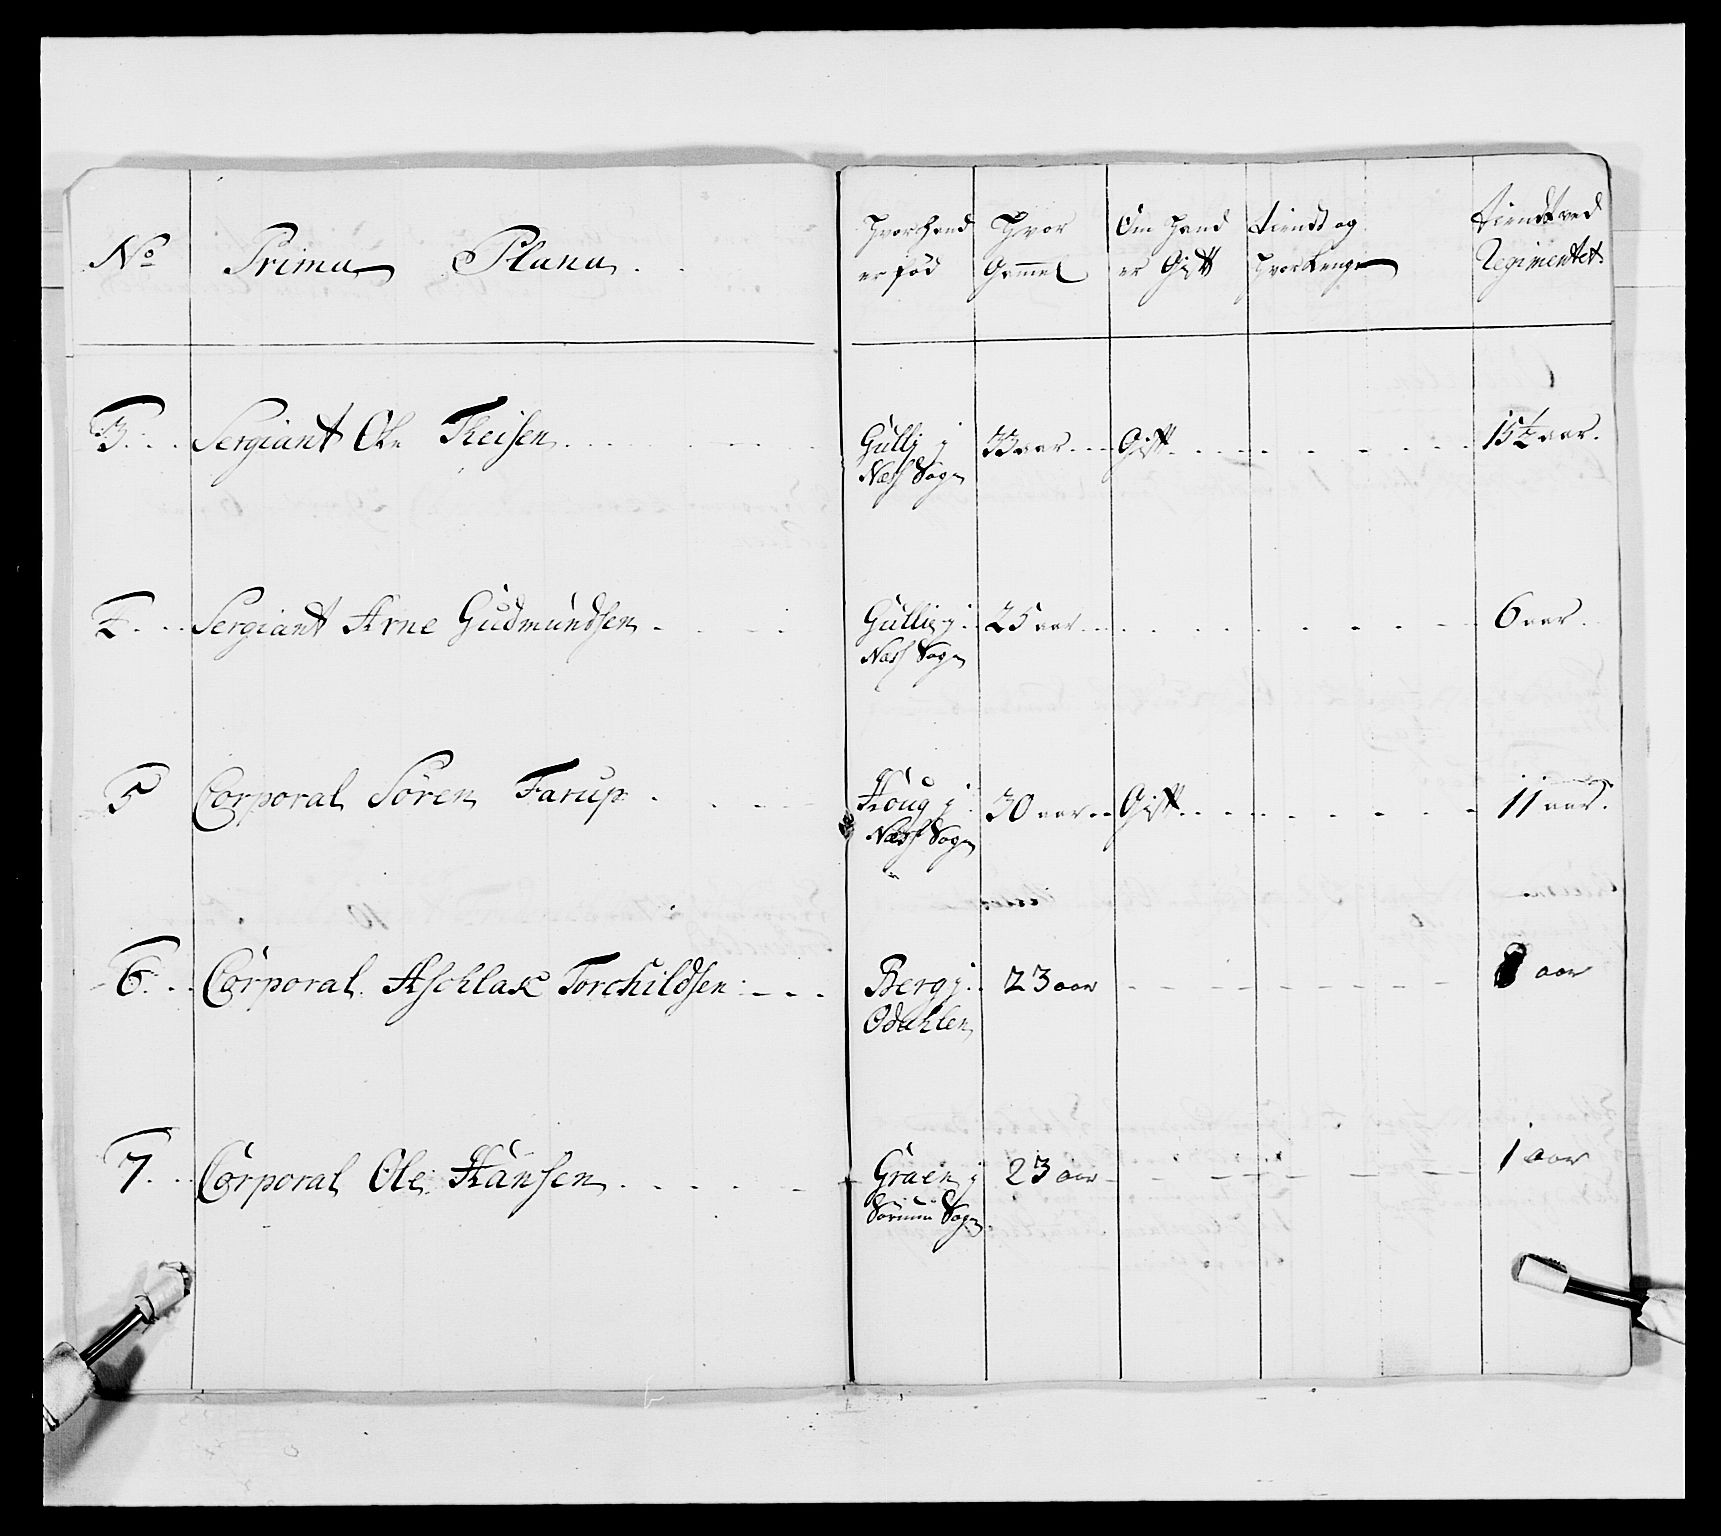 No Prima Plana. Hvor hand er fød Hvor Gammel Om hand er Gift tiendt og hvor lenge tiendt ved Regimentet.
3. Sergiant Ole Theisen Gulli j Næss Sogn 33 aar Gift 15½ aar.
4. Sergiant Arne Gudmundsen Gullie j Næss Sogn 25 aar 6 aar.
5 Corporal Sören Farup Houg j Næss Sogn 30 aar Gift 11 aar.
6. Corporal Aschlak Torchildsen Berg j Odahlen 23 aar aar
7. Corporal Ole Hansen Graen j Sörum Sogn 23 aar 1 aar